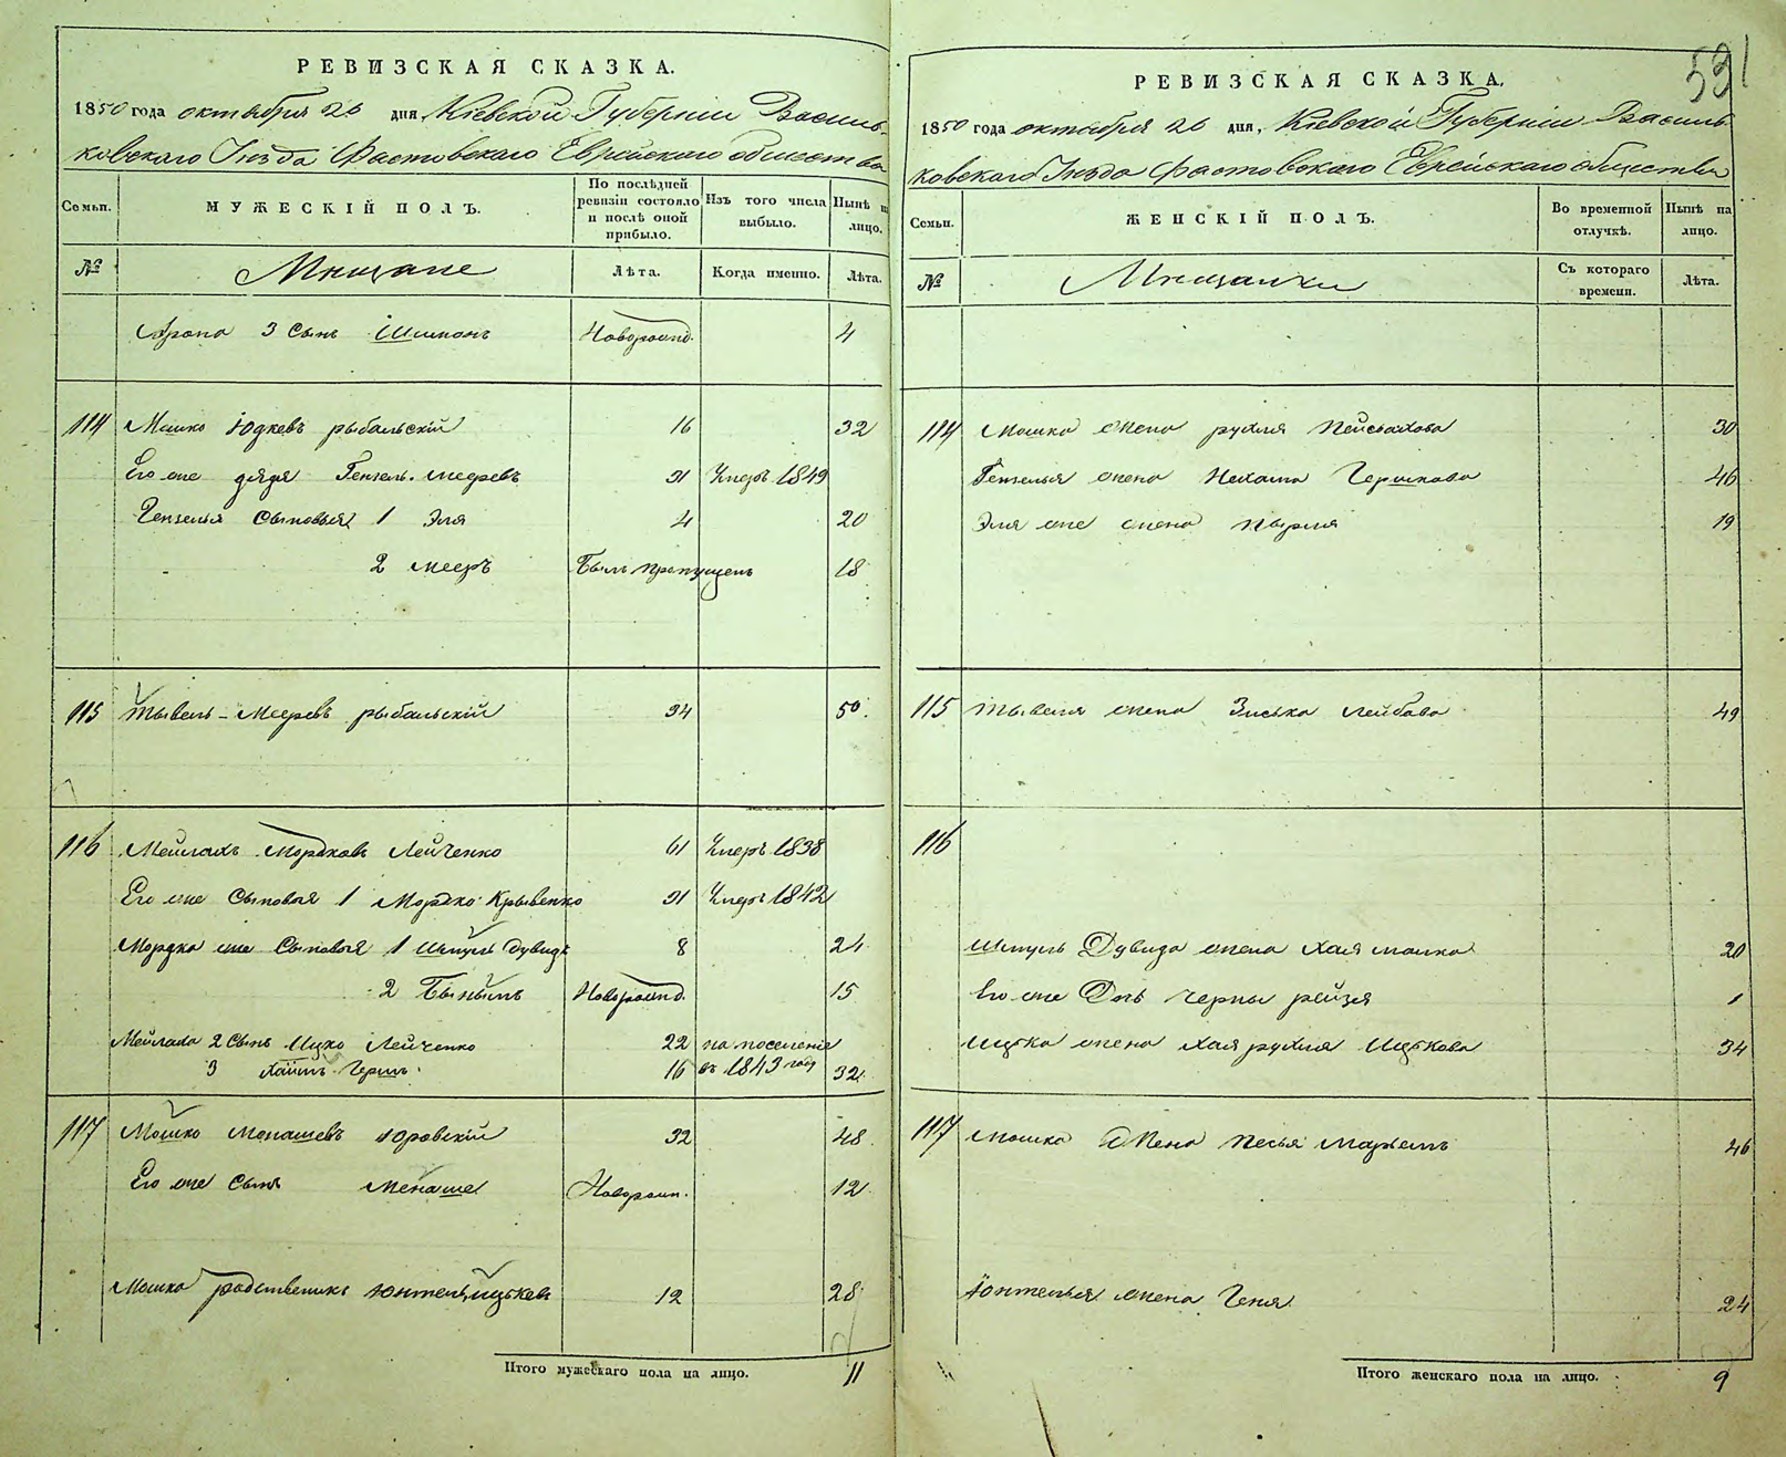 РЕВИЗСКАЯ СКАЗКА.
1850 года октября 26 дня, Кіевской Губерніи Василь-
ковскаго Уезда Фастовскаго Еврейскаго общества
Семьи.
МУЖЕСКІЙ ПОЛЪ.
По послѣдней
ревизіи состояло
и послѣ оной
прибыло.
Изъ того числа
выбыло.
Нынѣ на
лицо.
№
Мещане
Лѣта.
Когда именно.
Лѣта.
Арона 3 Сынъ Шимонъ Новорожд. 4
114 Мошко Юдкевъ рыбальскій 16 32
Его же дядя Гензель Мееровъ 31 Умеръ 1849
Гензеля Сыновья 1 Эля 4 20
2 Мееръ Былъ пропущенъ 18
115 Тывель-Мееровъ рыбальскій 34 50
116 Мейлахъ Мордковъ Лейченко 61 Умеръ 1838
Его же Сыновья 1 Мордко Крывенко 31 Умеръ 1842
Мордка же Сыновья 1 Шмуль Дувидъ 8 24
2 Бынымъ Новорожд. 15
Мейлаха 2 Сынъ Ицко Лейченко 22 на поселение
3 Хаимъ Гершъ 16 въ 1843 году 32
117 Мошко Монашевъ Юровскій 32 48
Его же Сынъ Менаше Новорожд. 12
Мошка родственикъ Юнтель Ицьковъ 12 28
Итого мужескаго пола на лицо. 11
531
РЕВИЗСКАЯ СКАЗКА.
1850 года октября 26 дня, Кіевской Губерніи Василь-
ковскаго Уезда Фастовскаго Еврейскаго общества
Семьи.
ЖЕНСКІЙ ПОЛЪ.
Во временной
отлучкѣ.
Нынѣ на
лицо.
№
Мещанки
Съ котораго
времени.
Лѣта.
114 Мошка жена рухля Пейсахова 30
Гензеля жена Нехама Гершкова 46
Эля же жена Пырля 19
115 Тывеля жена Зиська Лейбова 49
116
Шмуль Дувида жена Хая малка 20
Его же Дочь Черны рейзя 1
Ицька жена Хая рухля Ицькова 34
117 Мошка Жена Песья Марьемъ 46
Юнтеля жена Геня 24
Итого женскаго пола на лицо. 9